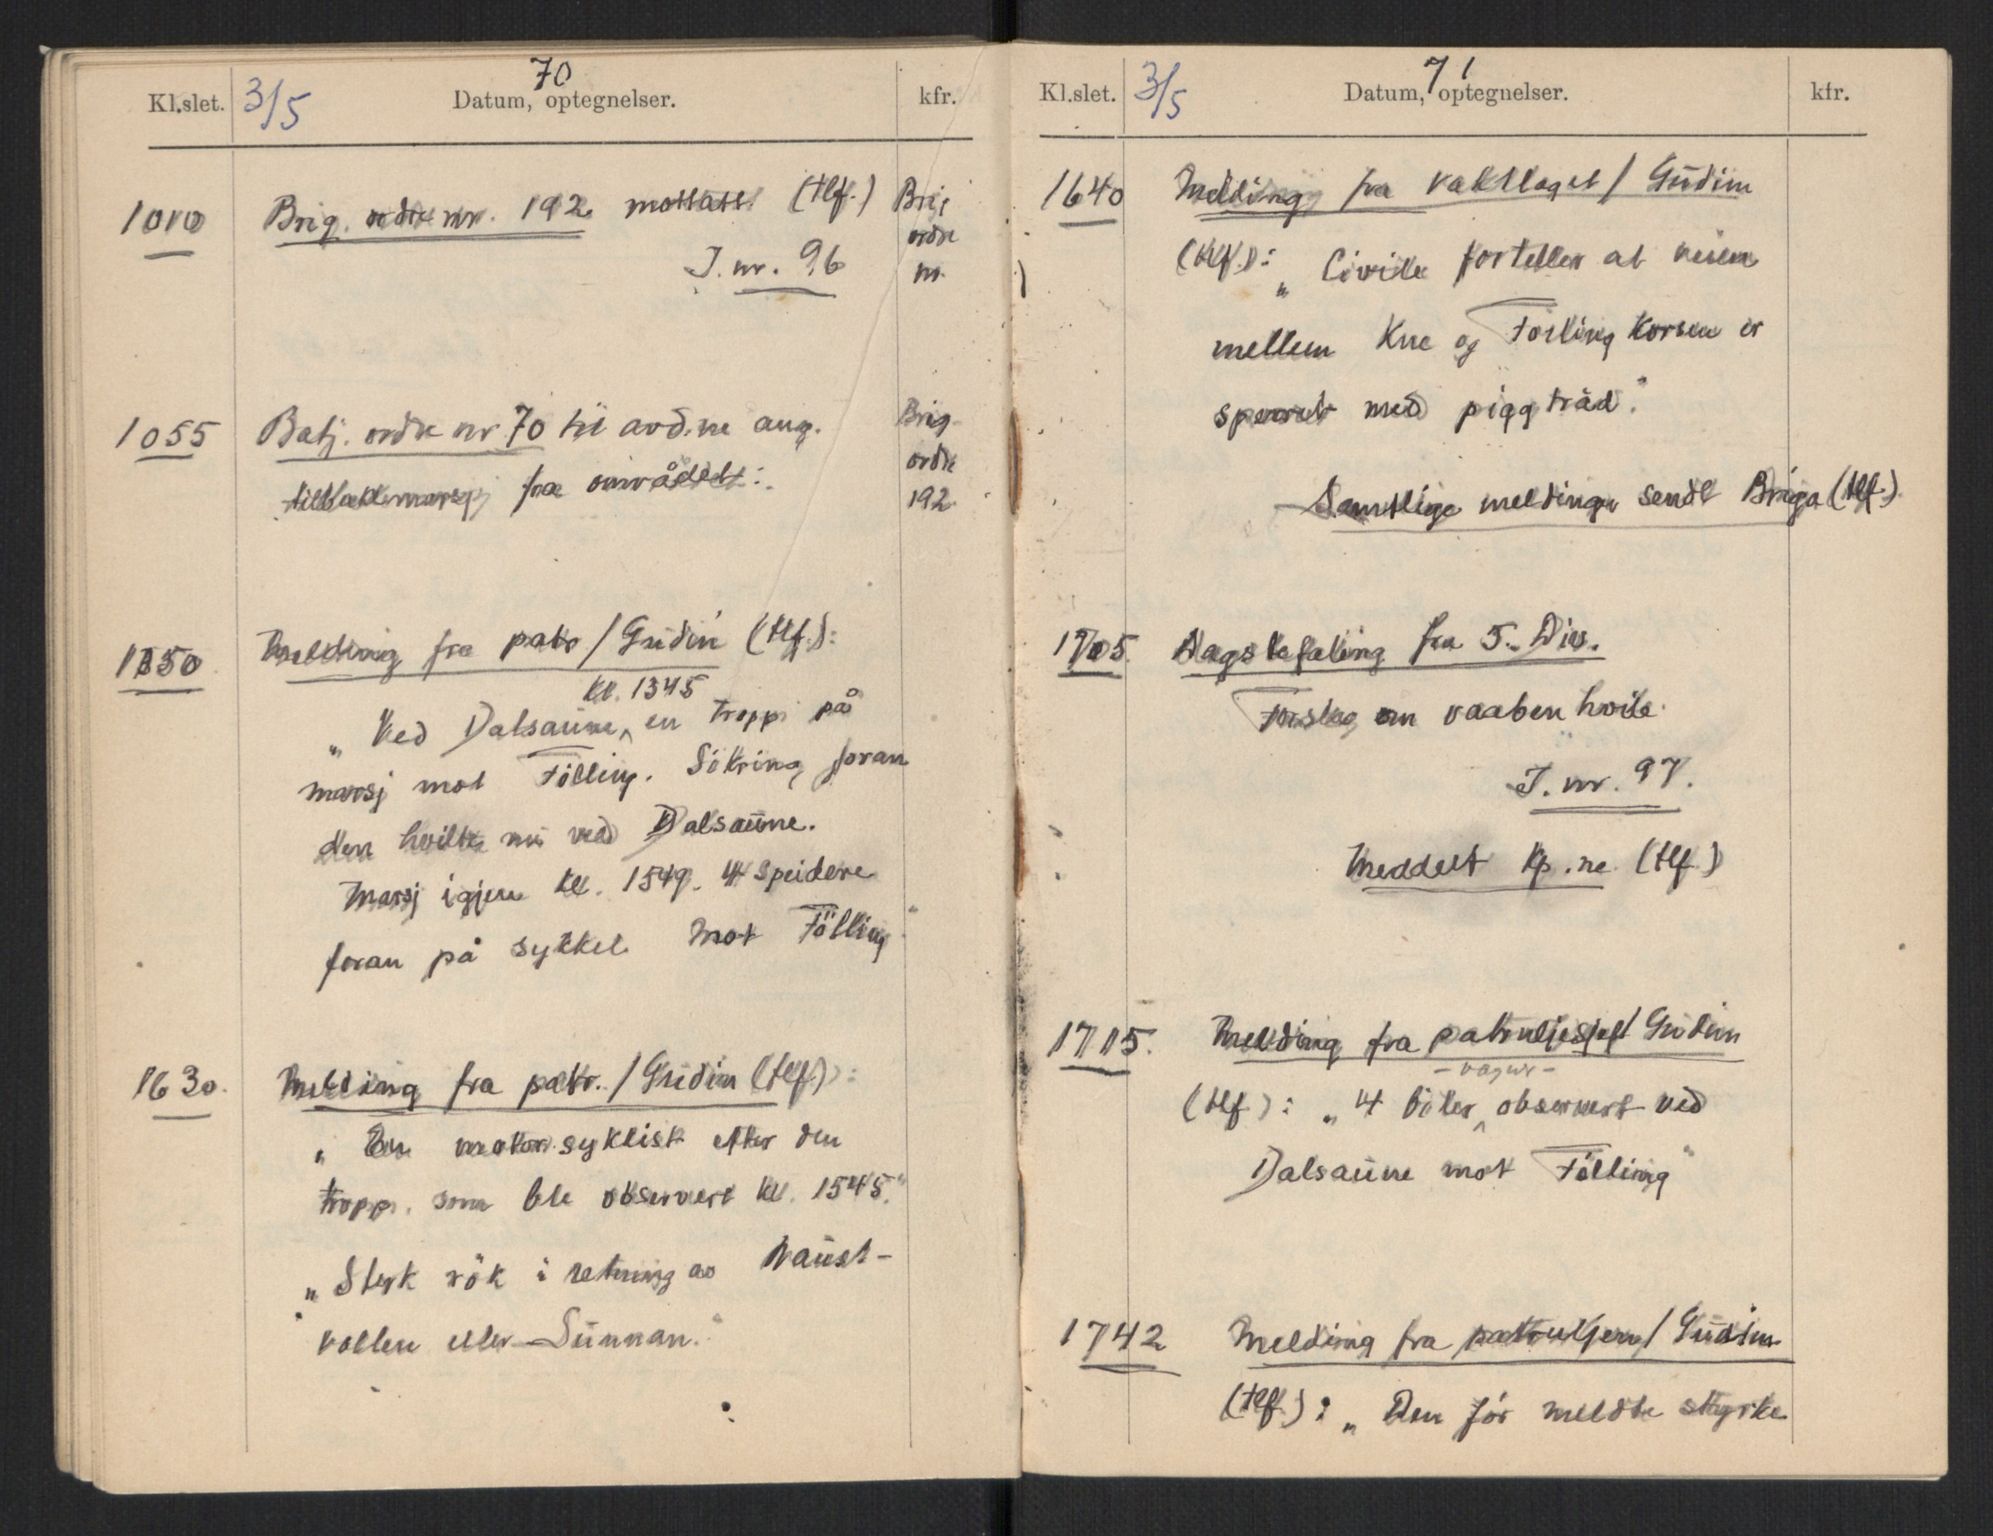 70
Kl.slet. 3/5 Datum, optegnelser. kfr.
1010 Brig. ordre nr. 192 mottatt (tlf.) Brig
ordre
J. nr. 96 nr.
1055 Batj. ordre nr 70 til avd.ne ang. Brig.
ordre
tilbakemarsj fra området: 192
1550 Melding fra patr / Gudin (tlf.):
Kl. 1345
„ Ved Dalsaune en tropp på
marsj mot Fölling. Sikring foran
den hvilte nu ved Dalsaune.
Marsj igjen kl. 1549. 4 speidere
foran på sykkel mot Fölling"
1630. Melding fra patr. / Gudin (tlf.):
„ En motorsyklist efter den
tropp. som ble observert kl. 1545."
„ Sterk rök i retning av Naust-
vollen eller Sunnan."
71
Kl.slet. 3/5 Datum, optegnelser. kfr.
1640 Melding fra vaktlaget / Gudim
(tlf.): „ Civile forteller at veien
mellem Kne og Fölling korsen er
sperret med piggtråd."
Samtlige meldinger sendt Briga (tlf.)
1705. Dagsbefaling fra 5. Div.
Forslag om vaabenhvile
J. nr. 97.
Meddelt Kp.ne (tlf.)
1715. Melding fra patruljesjef / Gudim
- vogner -
(tlf.): „ 4 biler observert ved
Dalsaune mot Fölling"
1742 Melding fra patruljen / Gudim
(tlf.): „ Den för meldte styrke